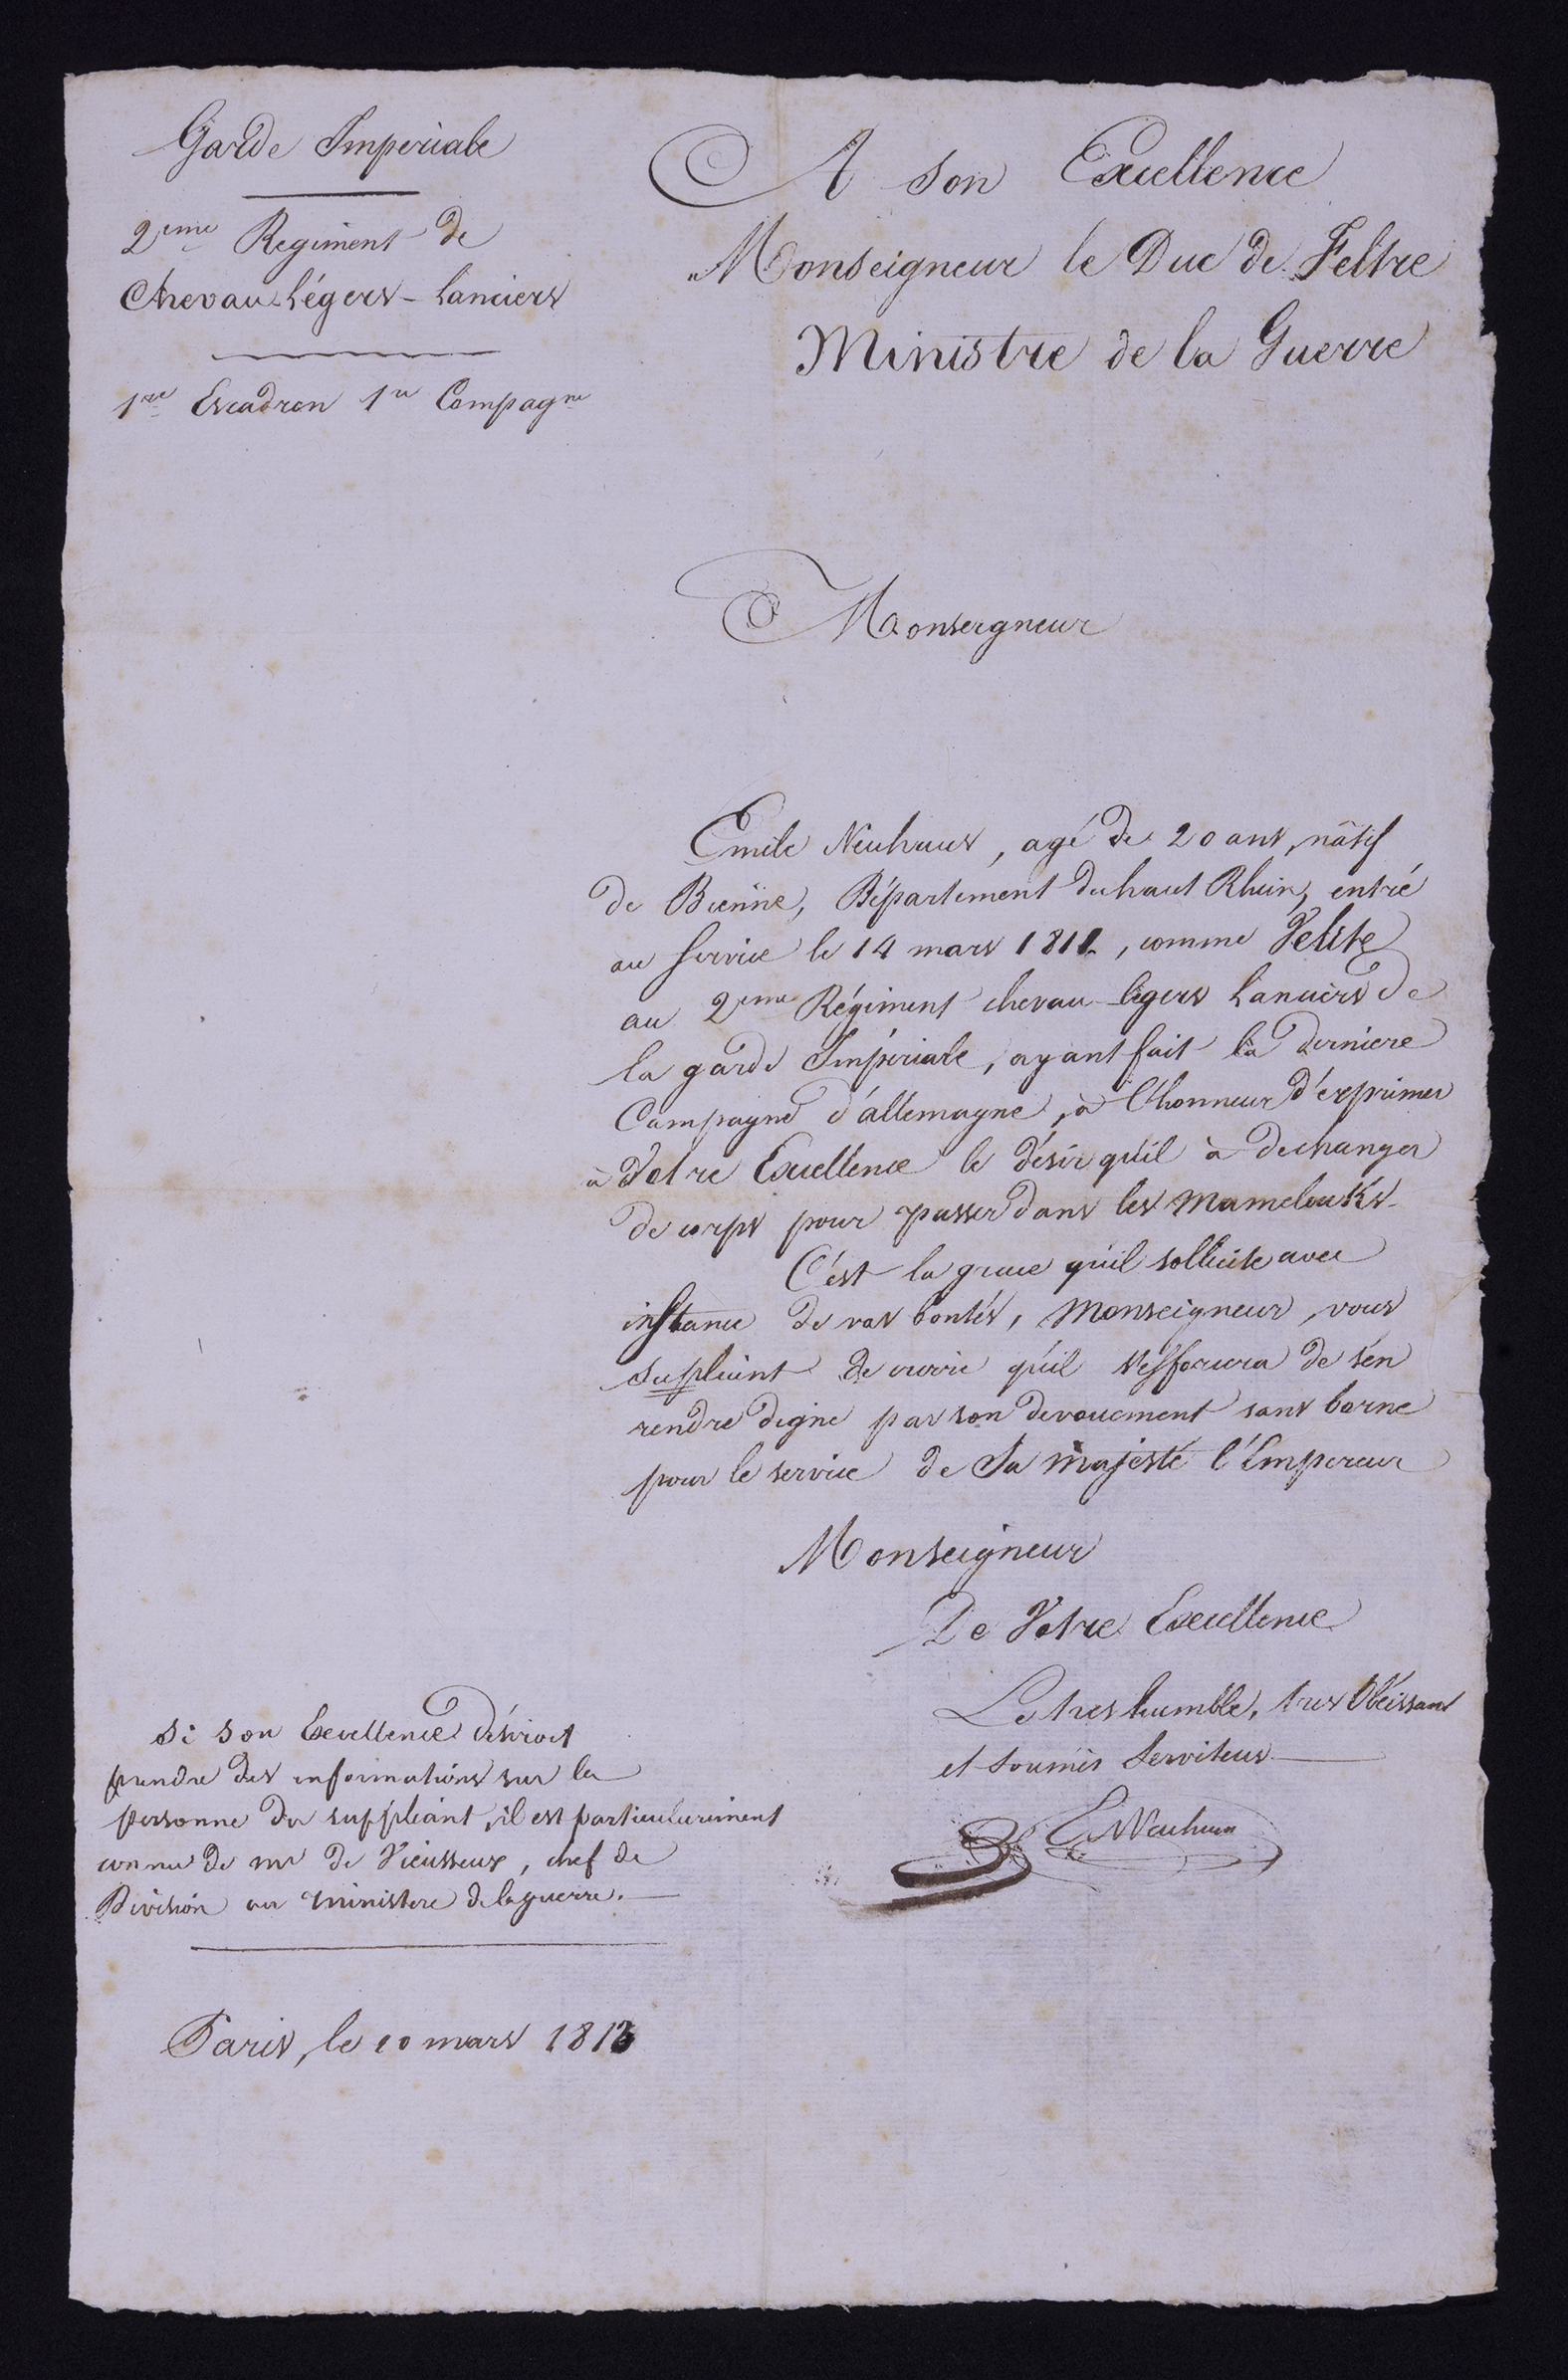 Garde Imperiale
2eme Regiment de
Chevau-légers-lanciers
1re Escadron 1re Compagnie
A son Excellence
Monseigneur le Duc de Feltre
Ministre de la Guerre
Monseigneur
Emile Neuhaus, agé de 20 ans, nâtif
de Bienne, Département du haut Rhein, entré
au service le 14 mars 1811, comme Velite
au 2eme Régiment chevau-légers lanciers de
la garde Impériale, ayant fait la derniere
Campagne d'allemagne, à l'honneur d'exprimer
à Votre Excellence le désir qu'il à dechanger
de corps pour passer dans les Mamelouks.
C'est la grace qu'il sollicite avec
instance de vos bontés, Monseigneur, vous
supliant de croire qu'il s'efforcera de s'en
rendre digne par son devouement sans borne
pour le service de Sa Majesté l'Empereur
Monseigneur
De Votre Excellence
Le tres humble, tres Obéissant
et soumis Serviteur
E Neuhaus
Si son Excellence désiroit
prendre des informations sur la
personne du suppliant, il est particulierement
connu de mr de Vieusseux, chef de
Division au ministere de la guerre.
Paris, le 10 mars 1813